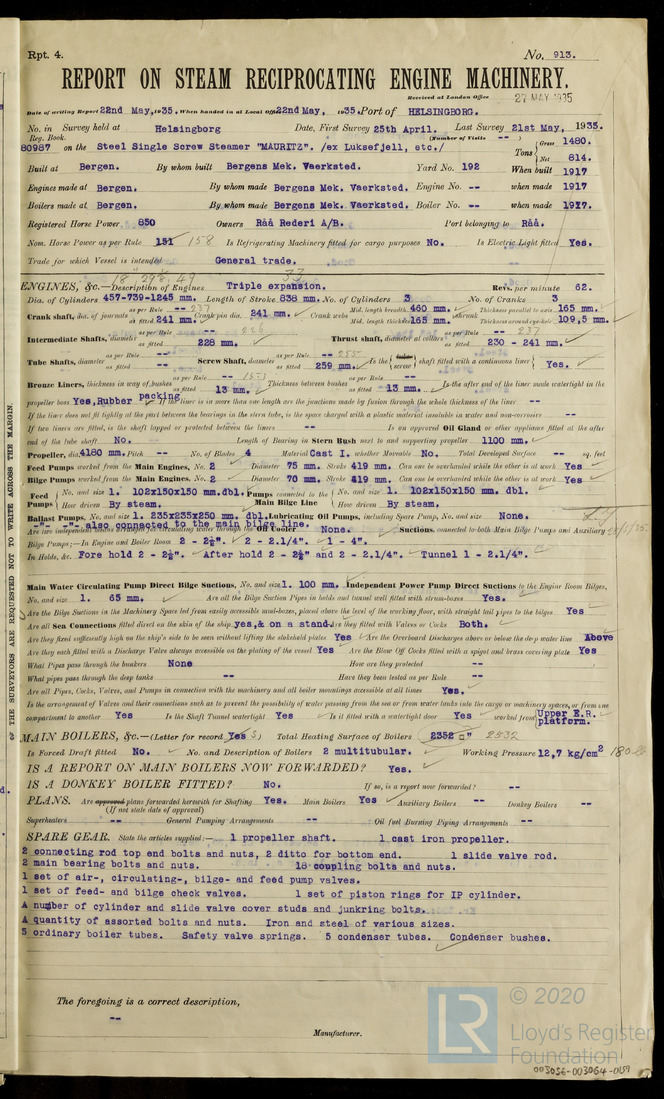 Rpt. 4.
No. 913.
REPORT ON STEAM RECIPROCATING ENGINE MACHINERY.
Received at London Office 27 MAY 1935
Date of writing Report 22nd May, 1935. When handed in at Local Office 22nd May, 1935. Port of HELSINGBORG.
No. in Reg. Book. Survey held at Helsingborg Date, First Survey 25th April. Last Survey 21st May, 1935.
(Number of Visits -- )
80987 on the Steel Single Screw Steamer "MAURITZ". /ex Luksefjell, etc./ Tons { Gross 1480. Net 814.
Built at Bergen. By whom built Bergens Mek. Vaerksted. Yard No. 192 When built 1917
Engines made at Bergen. By whom made Bergens Mek. Vaerksted. Engine No. -- when made 1917
Boilers made at Bergen. By whom made Bergens Mek. Vaerksted. Boiler No. -- when made 1917.
Registered Horse Power 850 Owners Råå Rederi A/B. Port belonging to Råå.
Nom. Horse Power as per Rule 151 158 Is Refrigerating Machinery fitted for cargo purposes No. Is Electric Light fitted Yes.
Trade for which Vessel is intended General trade.
ENGINES, &c.—Description of Engines Triple expansion. Revs. per minute 62.
Dia. of Cylinders 457-739-1245 mm. Length of Stroke 838 mm. No. of Cylinders 3 No. of Cranks 3
Crank shaft, dia. of journals as per Rule -- 237 as fitted 241 mm. Crank pin dia. 241 mm. Crank webs Mid. length breadth 460 mm. Mid. length thickness 165 mm. shrunk Thickness parallel to axis 165 mm. Thickness around eye-hole 109,5 mm.
Intermediate Shafts, diameter as per Rule -- 226 as fitted 228 mm. Thrust shaft, diameter at collars as per Rule -- 237 as fitted 230 - 241 mm.
Tube Shafts, diameter as per Rule -- as fitted -- Screw Shaft, diameter as per Rule -- 255 as fitted 259 mm. Is the { tube screw } shaft fitted with a continuous liner { Yes.
Bronze Liners, thickness in way of bushes as per Rule -- as fitted 13 mm. Thickness between bushes as per Rule -- as fitted 13 mm. Is the after end of the liner made watertight in the
propeller boss Yes, Rubber packing If the liner is in more than one length are the junctions made by fusion through the whole thickness of the liner --
If the liner does not fit tightly at the part between the bearings in the stern tube, is the space charged with a plastic material insoluble in water and non-corrosive --
If two liners are fitted, is the shaft lapped or protected between the liners -- Is an approved Oil Gland or other appliance fitted at the after
end of the tube shaft No. Length of Bearing in Stern Bush next to and supporting propeller 1100 mm.
Propeller, dia. 4180 mm. Pitch -- No. of Blades 4 Material Cast I. whether Moveable No. Total Developed Surface -- sq. feet
Feed Pumps worked from the Main Engines, No. 2 Diameter 75 mm. Stroke 419 mm. Can one be overhauled while the other is at work Yes
Bilge Pumps worked from the Main Engines, No. 2 Diameter 70 mm. Stroke 419 mm. Can one be overhauled while the other is at work Yes
Feed Pumps { No. and size 1. 102x150x150 mm.dbl. How driven By steam. Pumps connected to the Main Bilge Line { No. and size 1. 102x150x150 mm. dbl. How driven By steam.
Ballast Pumps, No. and size 1. 235x235x250 mm. dbl. Lubricating Oil Pumps, including Spare Pump, No. and size None.
-"- also connected to the main bilge line.
Are two independent means arranged for circulating water through the Oil Cooler None. Suctions, connected to both Main Bilge Pumps and Auxiliary
Bilge Pumps;—In Engine and Boiler Room 2 - 2½". 2 - 2.1/4". 1 - 4".
In Holds, &c. Fore hold 2 - 2½". After hold 2 - 2½" and 2 - 2.1/4". Tunnel 1 - 2.1/4".
Main Water Circulating Pump Direct Bilge Suctions, No. and size 1. 100 mm. Independent Power Pump Direct Suctions to the Engine Room Bilges,
No. and size 1. 65 mm. Are all the Bilge Suction Pipes in holds and tunnel well fitted with strum-boxes Yes.
Are the Bilge Suctions in the Machinery Space led from easily accessible mud-boxes, placed above the level of the working floor, with straight tail pipes to the bilges Yes
Are all Sea Connections fitted direct on the skin of the ship yes, & on a stand. Are they fitted with Valves or Cocks Both.
Are they fixed sufficiently high on the ship's side to be seen without lifting the stokehold plates Yes Are the Overboard Discharges above or below the deep water line Above
Are they each fitted with a Discharge Valve always accessible on the plating of the vessel Yes Are the Blow Off Cocks fitted with a spigot and brass covering plate Yes
What Pipes pass through the bunkers None How are they protected --
What pipes pass through the deep tanks -- Have they been tested as per Rule --
Are all Pipes, Cocks, Valves, and Pumps in connection with the machinery and all boiler mountings accessible at all times Yes.
Is the arrangement of Valves and their connections such as to prevent the possibility of water passing from the sea or from water tanks into the cargo or machinery spaces, or from one
compartment to another Yes Is the Shaft Tunnel watertight Yes Is it fitted with a watertight door Yes worked from Upper E.R. platform.
MAIN BOILERS, &c.—(Letter for record Yes S) Total Heating Surface of Boilers 2352 □" 2532
Is Forced Draft fitted No. No. and Description of Boilers 2 multitubular. Working Pressure 12,7 kg/cm2 180 lb
IS A REPORT ON MAIN BOILERS NOW FORWARDED? Yes.
IS A DONKEY BOILER FITTED? No. If so, is a report now forwarded? --
PLANS. Are approved plans forwarded herewith for Shafting Yes. Main Boilers Yes Auxiliary Boilers -- Donkey Boilers --
(If not state date of approval)
Superheaters -- General Pumping Arrangements -- Oil fuel Burning Piping Arrangements --
SPARE GEAR. State the articles supplied:— 1 propeller shaft. 1 cast iron propeller.
2 connecting rod top end bolts and nuts, 2 ditto for bottom end. 1 slide valve rod.
2 main bearing bolts and nuts. 18 coupling bolts and nuts.
1 set of air-, circulating-, bilge- and feed pump valves.
1 set of feed- and bilge check valves. 1 set of piston rings for IP cylinder.
A number of cylinder and slide valve cover studs and junkring bolts.
A quantity of assorted bolts and nuts. Iron and steel of various sizes.
5 ordinary boiler tubes. Safety valve springs. 5 condenser tubes. Condenser bushes.
The foregoing is a correct description,
--
Manufacturer.
OF THE SURVEYORS ARE REQUESTED NOT TO WRITE ACROSS THE MARGIN.
LR © 2020
Lloyd's Register
Foundation
003056-003064-0159